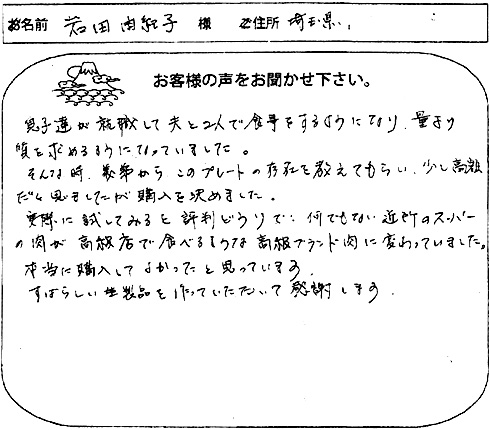 お名前 岩田由紀子 様 ご住所 埼玉県
お客様の声をお聞かせ下さい。
息子達が就職して夫と2人で食事をするようになり、量より
質を求めるようになっていました。
そんな時、義弟からこのプレートの存在を教えてもらい、少し高額
だと思いましたが購入を決めました。
実際に試してみると評判どうりで、何でもない近所のスーパー
の肉が高級店で食べるような高級ブランド肉に変わっていました。
本当に購入してよかったと思っています。
すばらしい製品を作っていただいて感謝します。